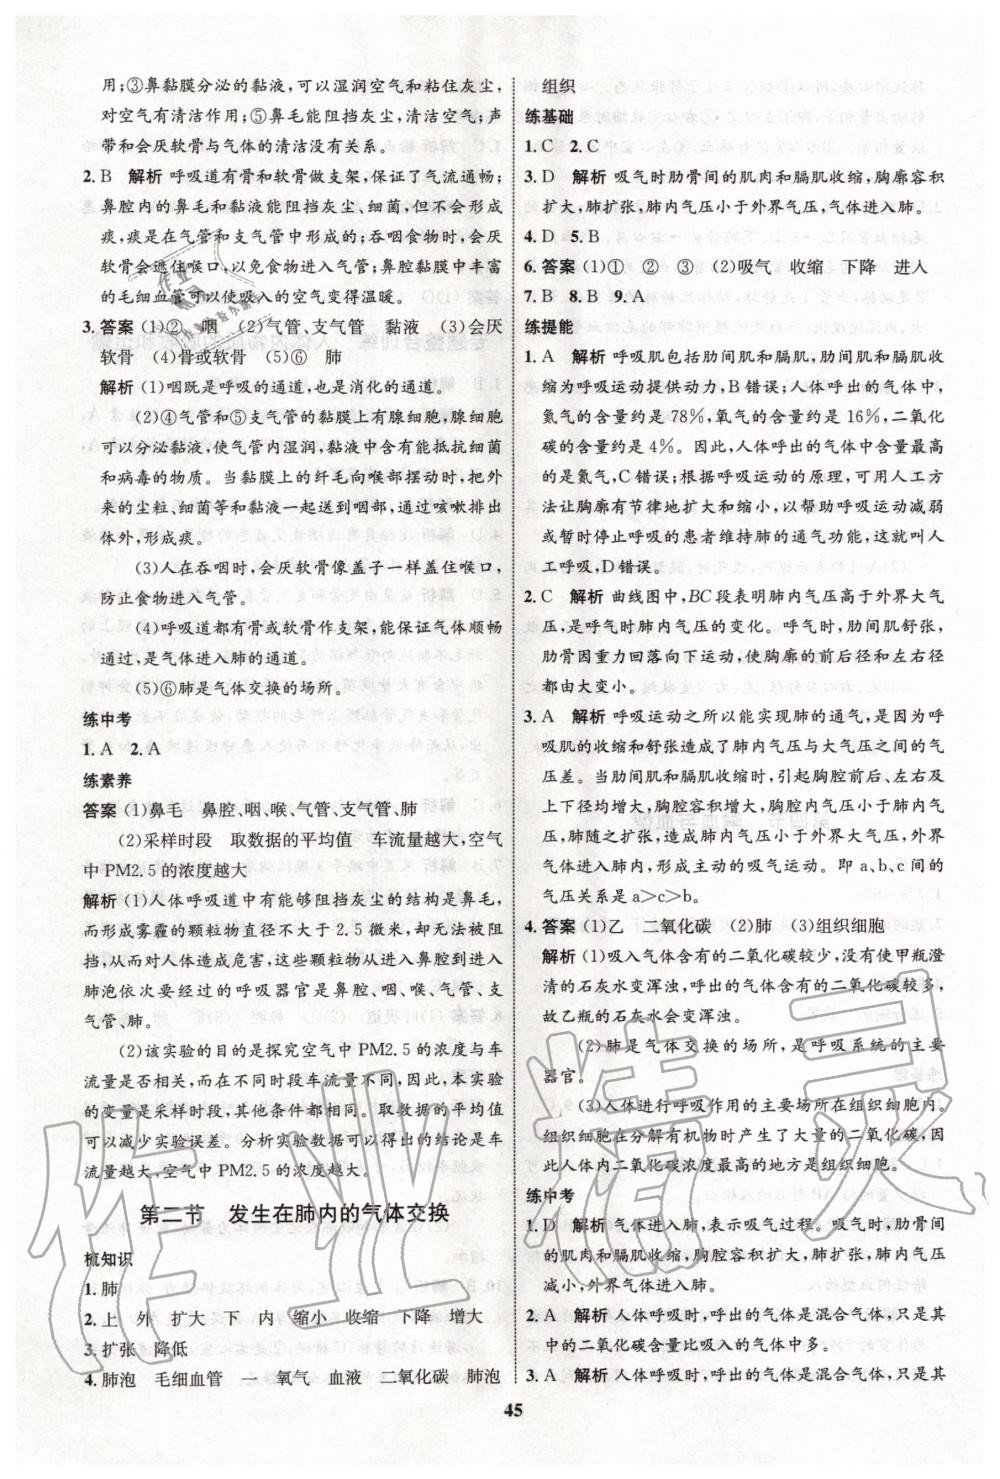 用;③鼻黏膜分泌的黏液,可以湿润空气和粘住灰尘,
对空气有清洁作用;⑤鼻毛能阻挡灰尘,清洁空气;声
带和会厌软骨与气体的清洁没有关系。
2. B 解析 呼吸道有骨和软骨做支架,保证了气流通畅;
鼻腔内的鼻毛和黏液能阻挡灰尘、细菌,但不会形成
痰,痰是在气管和支气管中形成的;吞咽食物时,会厌
软骨会遮住喉口,以免食物进入气管;鼻腔黏膜中丰富
的毛细血管可以使吸入的空气变得温暖。
3. 答案 (1)② 咽 (2)气管、支气管 黏液 (3)会厌
软骨 (4)骨或软骨 (5)⑥ 肺
解析 (1)咽既是呼吸的通道,也是消化的通道。
(2)④气管和⑤支气管的黏膜上有腺细胞,腺细胞
可以分泌黏液,使气管内湿润,黏液中含有能抵抗细菌
和病毒的物质。当黏膜上的纤毛向喉部摆动时,把外
来的尘粒,细菌等和黏液一起送到咽部,通过咳嗽排出
体外,形成痰。
(3)人在吞咽时,会厌软骨像盖子一样盖住喉口,
防止食物进入气管。
(4)呼吸道都有骨或软骨作支架,能保证气体顺畅
通过,是气体进入肺的通道。
(5)⑥肺是气体交换的场所。
练中考
1. A 2. A
练素养
答案 (1)鼻毛 鼻腔、咽、喉、气管、支气管、肺
(2)采样时段 取数据的平均值 车流量越大,空气
中PM2.5的浓度越大
解析 (1)人体呼吸道中有能够阻挡灰尘的结构是鼻毛,
而形成雾霾的颗粒物直径不大于2.5微米,却无法被阻
挡,从而对人体造成危害,这些颗粒物从进入鼻腔到进入
肺泡依次要经过的呼吸器官是鼻腔、咽、喉、气管、支
气管、肺。
(2)该实验的目的是探究空气中PM2.5的浓度与车
流量是否相关,而在不同时段车流量不同,因此,本实验
的变量是采样时段,其他条件都相同。取数据的平均值
可以减少实验误差。分析实验数据可以得出的结论是车
流量越大,空气中PM2.5的浓度越大。
第二节 发生在肺内的气体交换
梳知识
1. 肺
2. 上 外 扩大 下 内 缩小 收缩 下降 增大
3. 扩张 降低
4. 肺泡 毛细血管 一 氧气 血液 二氧化碳 肺泡
组织
练基础
1. C 2. C
3. D 解析 吸气时肋骨间的肌肉和膈肌收缩,胸廓容积
扩大,肺扩张,肺内气压小于外界气压,气体进入肺。
4. D 5. B
6. 答案 (1)① ② ③ (2)吸气 收缩 下降 进人
7. B 8. B 9. A
练提能
1. A 解析 呼吸肌包括肋间肌和膈肌,肋间肌和膈肌收
缩为呼吸运动提供动力,B错误;人体呼出的气体中,
氮气的含量约是78%,氧气的含量约是16%,二氧化
碳的含量约是4%。因此,人体呼出的气体中含量最高
的是氮气,C错误;根据呼吸运动的原理,可用人工方
法让胸廓有节律地扩大和缩小,以帮助呼吸运动减弱
或暂时停止呼吸的患者维持肺的通气功能,这就叫人
工呼吸,D错误。
2. C 解析 曲线图中,BC段表明肺内气压高于外界大气
压,是呼气时肺内气压的变化。呼气时,肋间肌舒张,
肋骨因重力回落向下运动,使胸廓的前后径和左右径
都由大变小。
3. A 解析 呼吸运动之所以能实现肺的通气,是因为呼
吸肌的收缩和舒张造成了肺内气压与大气压之间的气
压差。当肋间肌和膈肌收缩时,引起胸腔前后、左右及
上下径均增大,胸腔容积增大,胸腔内气压小于外界气
压,肺随之扩张,造成肺内气压小于外界大气压,外界
气体进入肺内,形成主动的吸气运动。即a、b、c间的
气压关系是a>c>b。
4. 答案 (1)乙 二氧化碳 (2)肺 (3)组织细胞
解析 (1)吸入气体含有的二氧化碳较少,没有使甲瓶澄
清的石灰水变浑浊,呼出的气体含有的二氧化碳较多,
故乙瓶的石灰水会变浑浊。
(2)肺是气体交换的场所,是呼吸系统的主要
器官。
(3)人体进行呼吸作用的主要场所在组织细胞内。
组织细胞在分解有机物时产生了大量的二氧化碳,因
此人体内二氧化碳浓度最高的地方是组织细胞。
练中考
1. D 解析 气体进入肺,表示吸气过程。吸气时,肋骨间
的肌肉和膈肌收缩,胸廓容积扩大,肺扩张,肺内气压
减小,外界气体进入肺。
2. A 解析 人体呼吸时,呼出的气体是混合气体,只是其
中的二氧化碳含量比吸入的气体中多。
3. A 解析 人体呼吸时,呼出的气体是混合气体,只是其
45
作业精灵